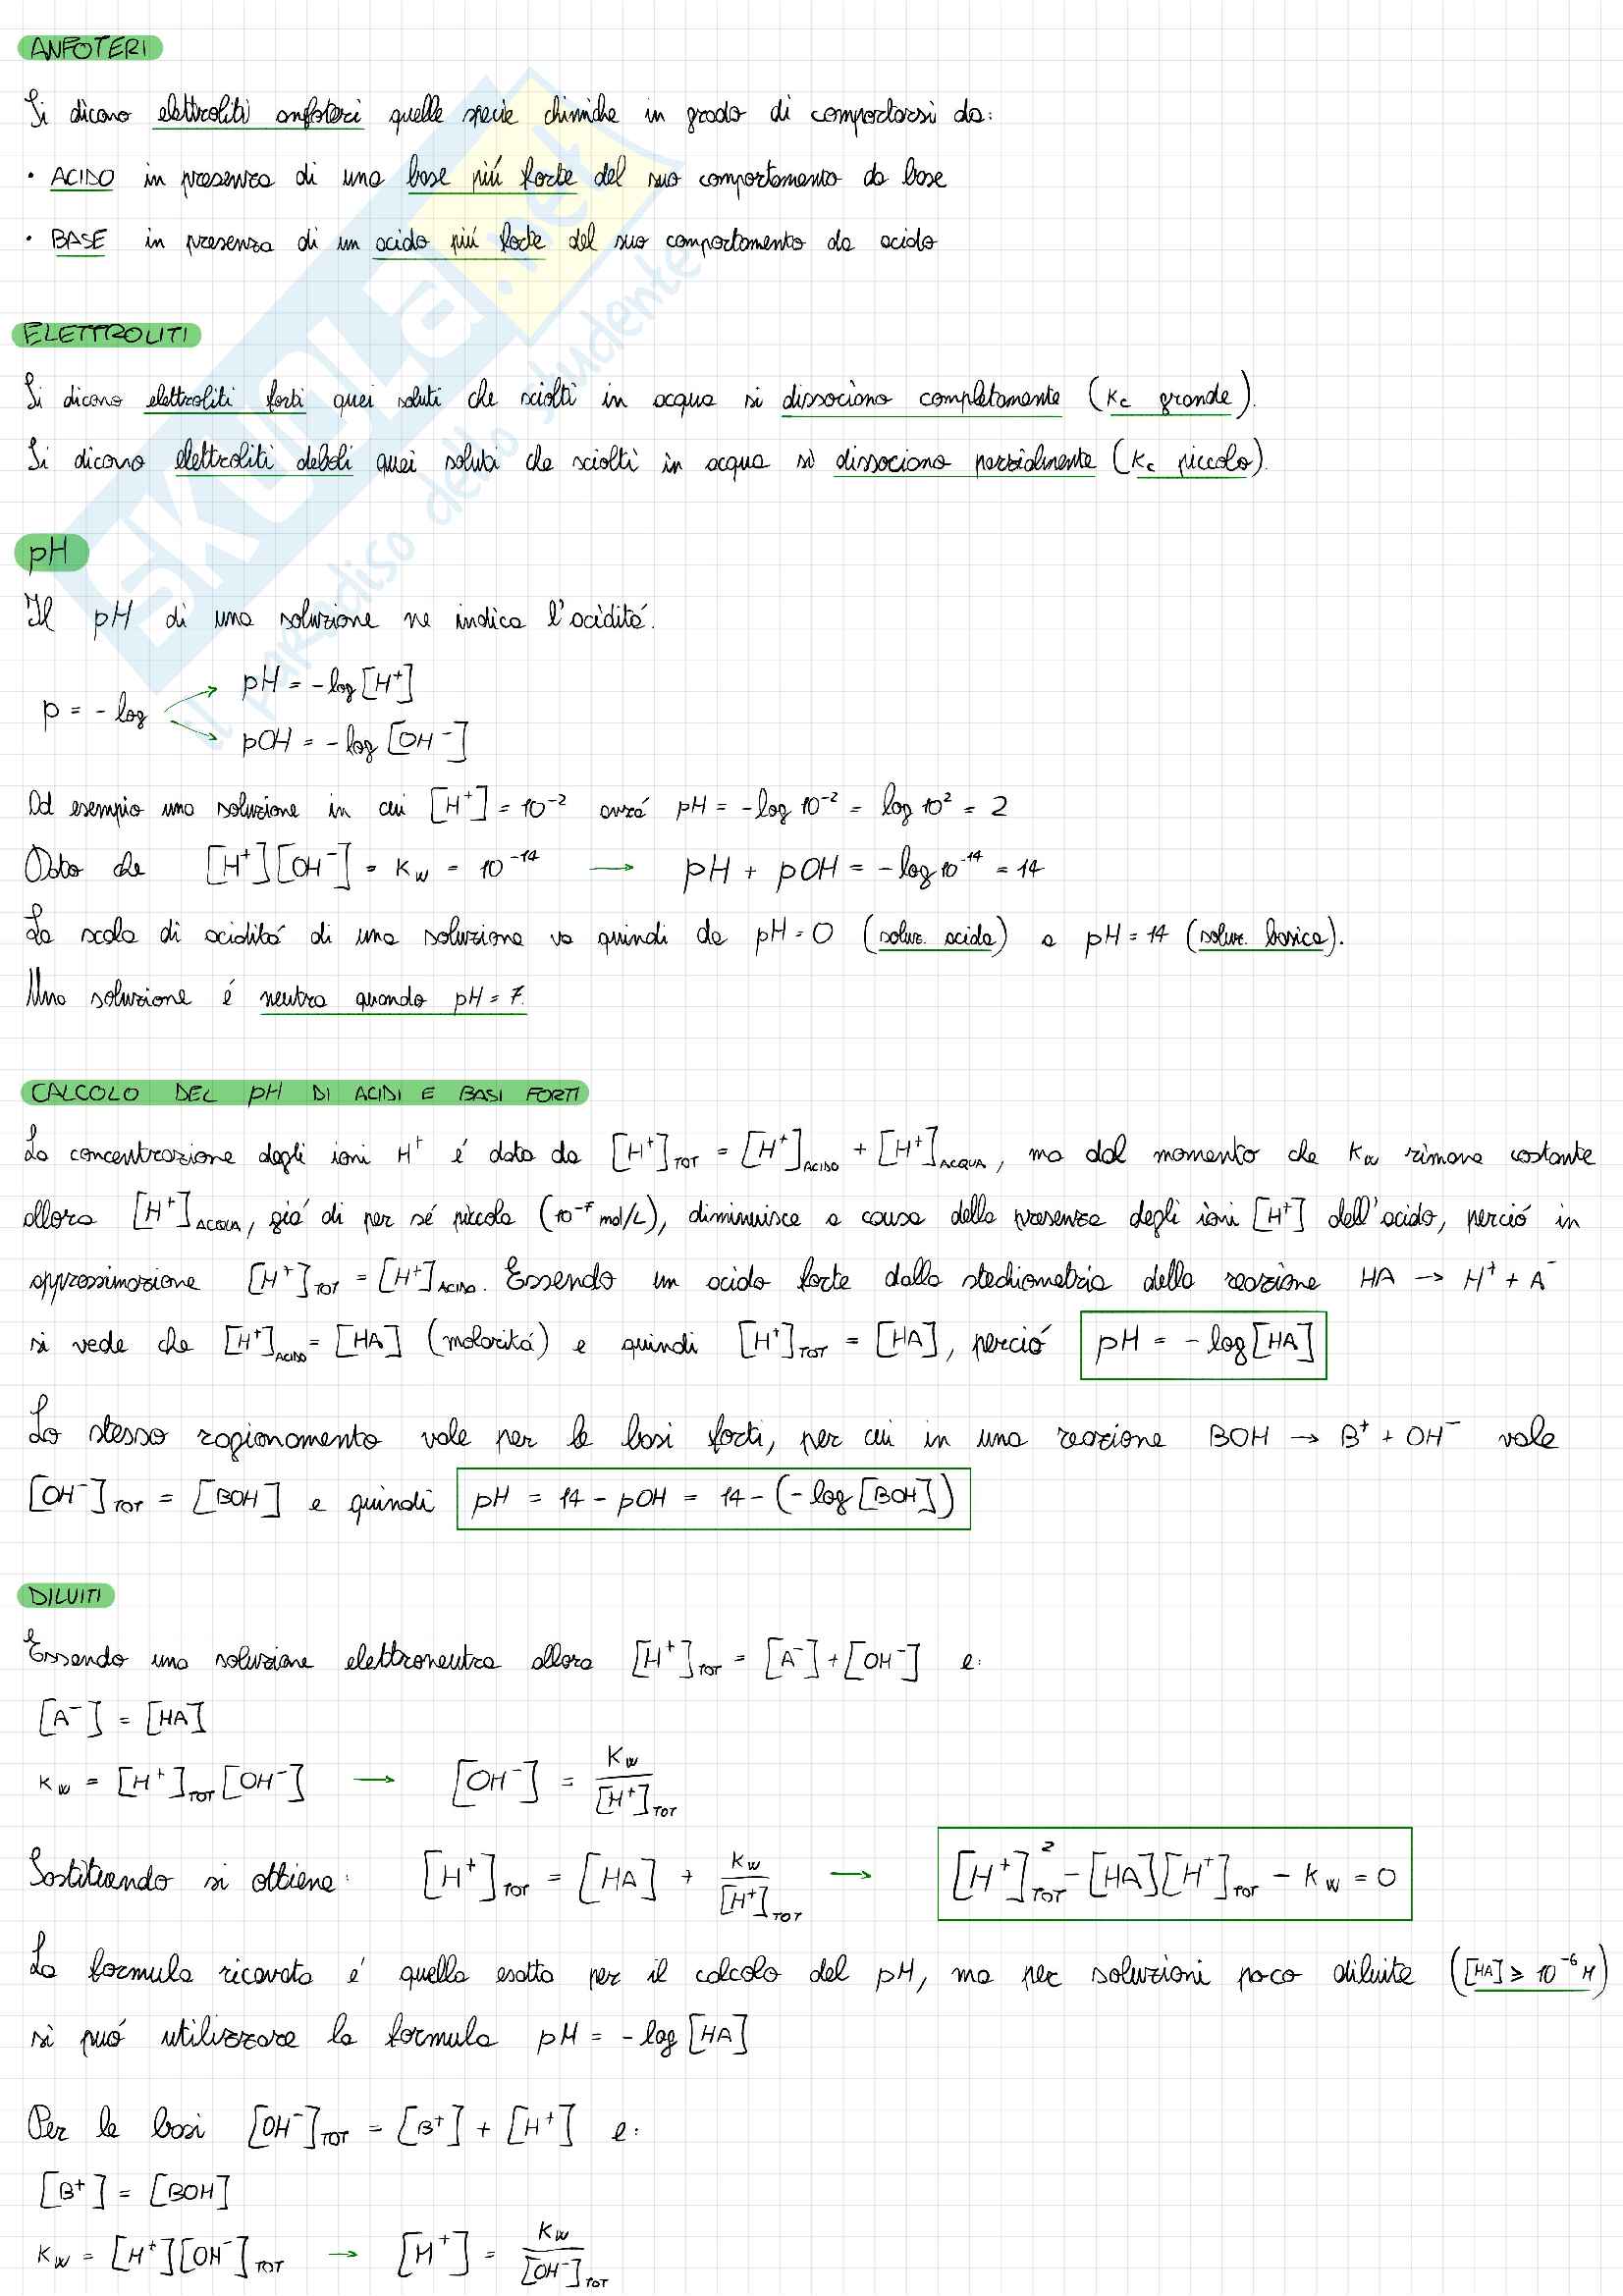 ANFOTERI
Si dicono elettroliti anfoteri quelle specie chimiche in grado di comportarsi da:
• ACIDO in presenza di una base più forte del suo comportamento da base
• BASE in presenza di un acido più forte del suo comportamento da acido
ELETTROLITI
Si dicono elettroliti forti quei soluti che sciolti in acqua si dissociano completamente (Kc grande).
Si dicono elettroliti deboli quei soluti che sciolti in acqua si dissociano parzialmente (Kc piccolo).
pH
Il pH di una soluzione ne indica l'acidità.
pH = -log[H⁺]
p = -log
pOH = -log[OH⁻]
Ad esempio una soluzione in cui [H⁺] = 10⁻² avrá pH = -log 10⁻² = log 10² = 2
Dato che [H⁺][OH⁻] = Kw = 10⁻¹⁴ → pH + pOH = -log 10⁻¹⁴ = 14
La scala di aciditá di una soluzione va quindi da pH = 0 (soluz. acida) a pH = 14 (soluz. basica).
Una soluzione é neutra quando pH = 7.
CALCOLO DEL pH DI ACIDI E BASI FORTI
La concentrazione degli ioni H⁺ é data da [H⁺]TOT = [H⁺]ACIDO + [H⁺]ACQUA, ma dal momento che Kw rimane costante
allora [H⁺]ACQUA, giá di per sé piccola (10⁻⁷ mol/L), diminuisce a causa della presenza degli ioni [H⁺] dell'acido, perció in
approssimazione [H⁺]TOT = [H⁺]ACIDO. Essendo un acido forte dalla stechiometria della reazione HA → H⁺ + A⁻
si vede che [H⁺]ACIDO = [HA] (molaritá) e quindi [H⁺]TOT = [HA], perció pH = -log[HA]
Lo stesso ragionamento vale per le basi forti, per cui in una reazione BOH → B⁺ + OH⁻ vale
[OH⁻]TOT = [BOH] e quindi pH = 14 - pOH = 14 - (-log[BOH])
DILUITI
Essendo una soluzione elettroneutra allora [H⁺]TOT = [A⁻] + [OH⁻] e:
[A⁻] = [HA]
Kw = [H⁺]TOT [OH⁻] → [OH⁻] = Kw / [H⁺]TOT
Sostituendo si ottiene: [H⁺]TOT = [HA] + Kw / [H⁺]TOT → [H⁺]²TOT - [HA][H⁺]TOT - Kw = 0
La formula ricavata é quella esatta per il calcolo del pH, ma per soluzioni poco diluite ([HA] ⩾ 10⁻⁶ M)
si puó utilizzare la formula pH = -log[HA]
Per le basi [OH⁻]TOT = [B⁺] + [H⁺] e:
[B⁺] = [BOH]
Kw = [H⁺][OH⁻]TOT → [H⁺] = Kw / [OH⁻]TOT
SKUOLA.net
il paradiso dello studente